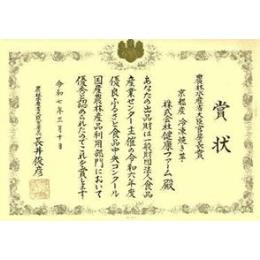 賞状
農林水産省大臣官房長賞
京都産 冷凍焼き芋
株式会社健康ファーム 殿
あなたの出品財は一般財団法人食品
産業センター主催の令和六年度
優良ふるさと食品中央コンクール
国産農林産品利用部門において
優秀と認められたのでこれを賞します
令和七年三月十日
農林水産省大臣官房長 長井俊彦